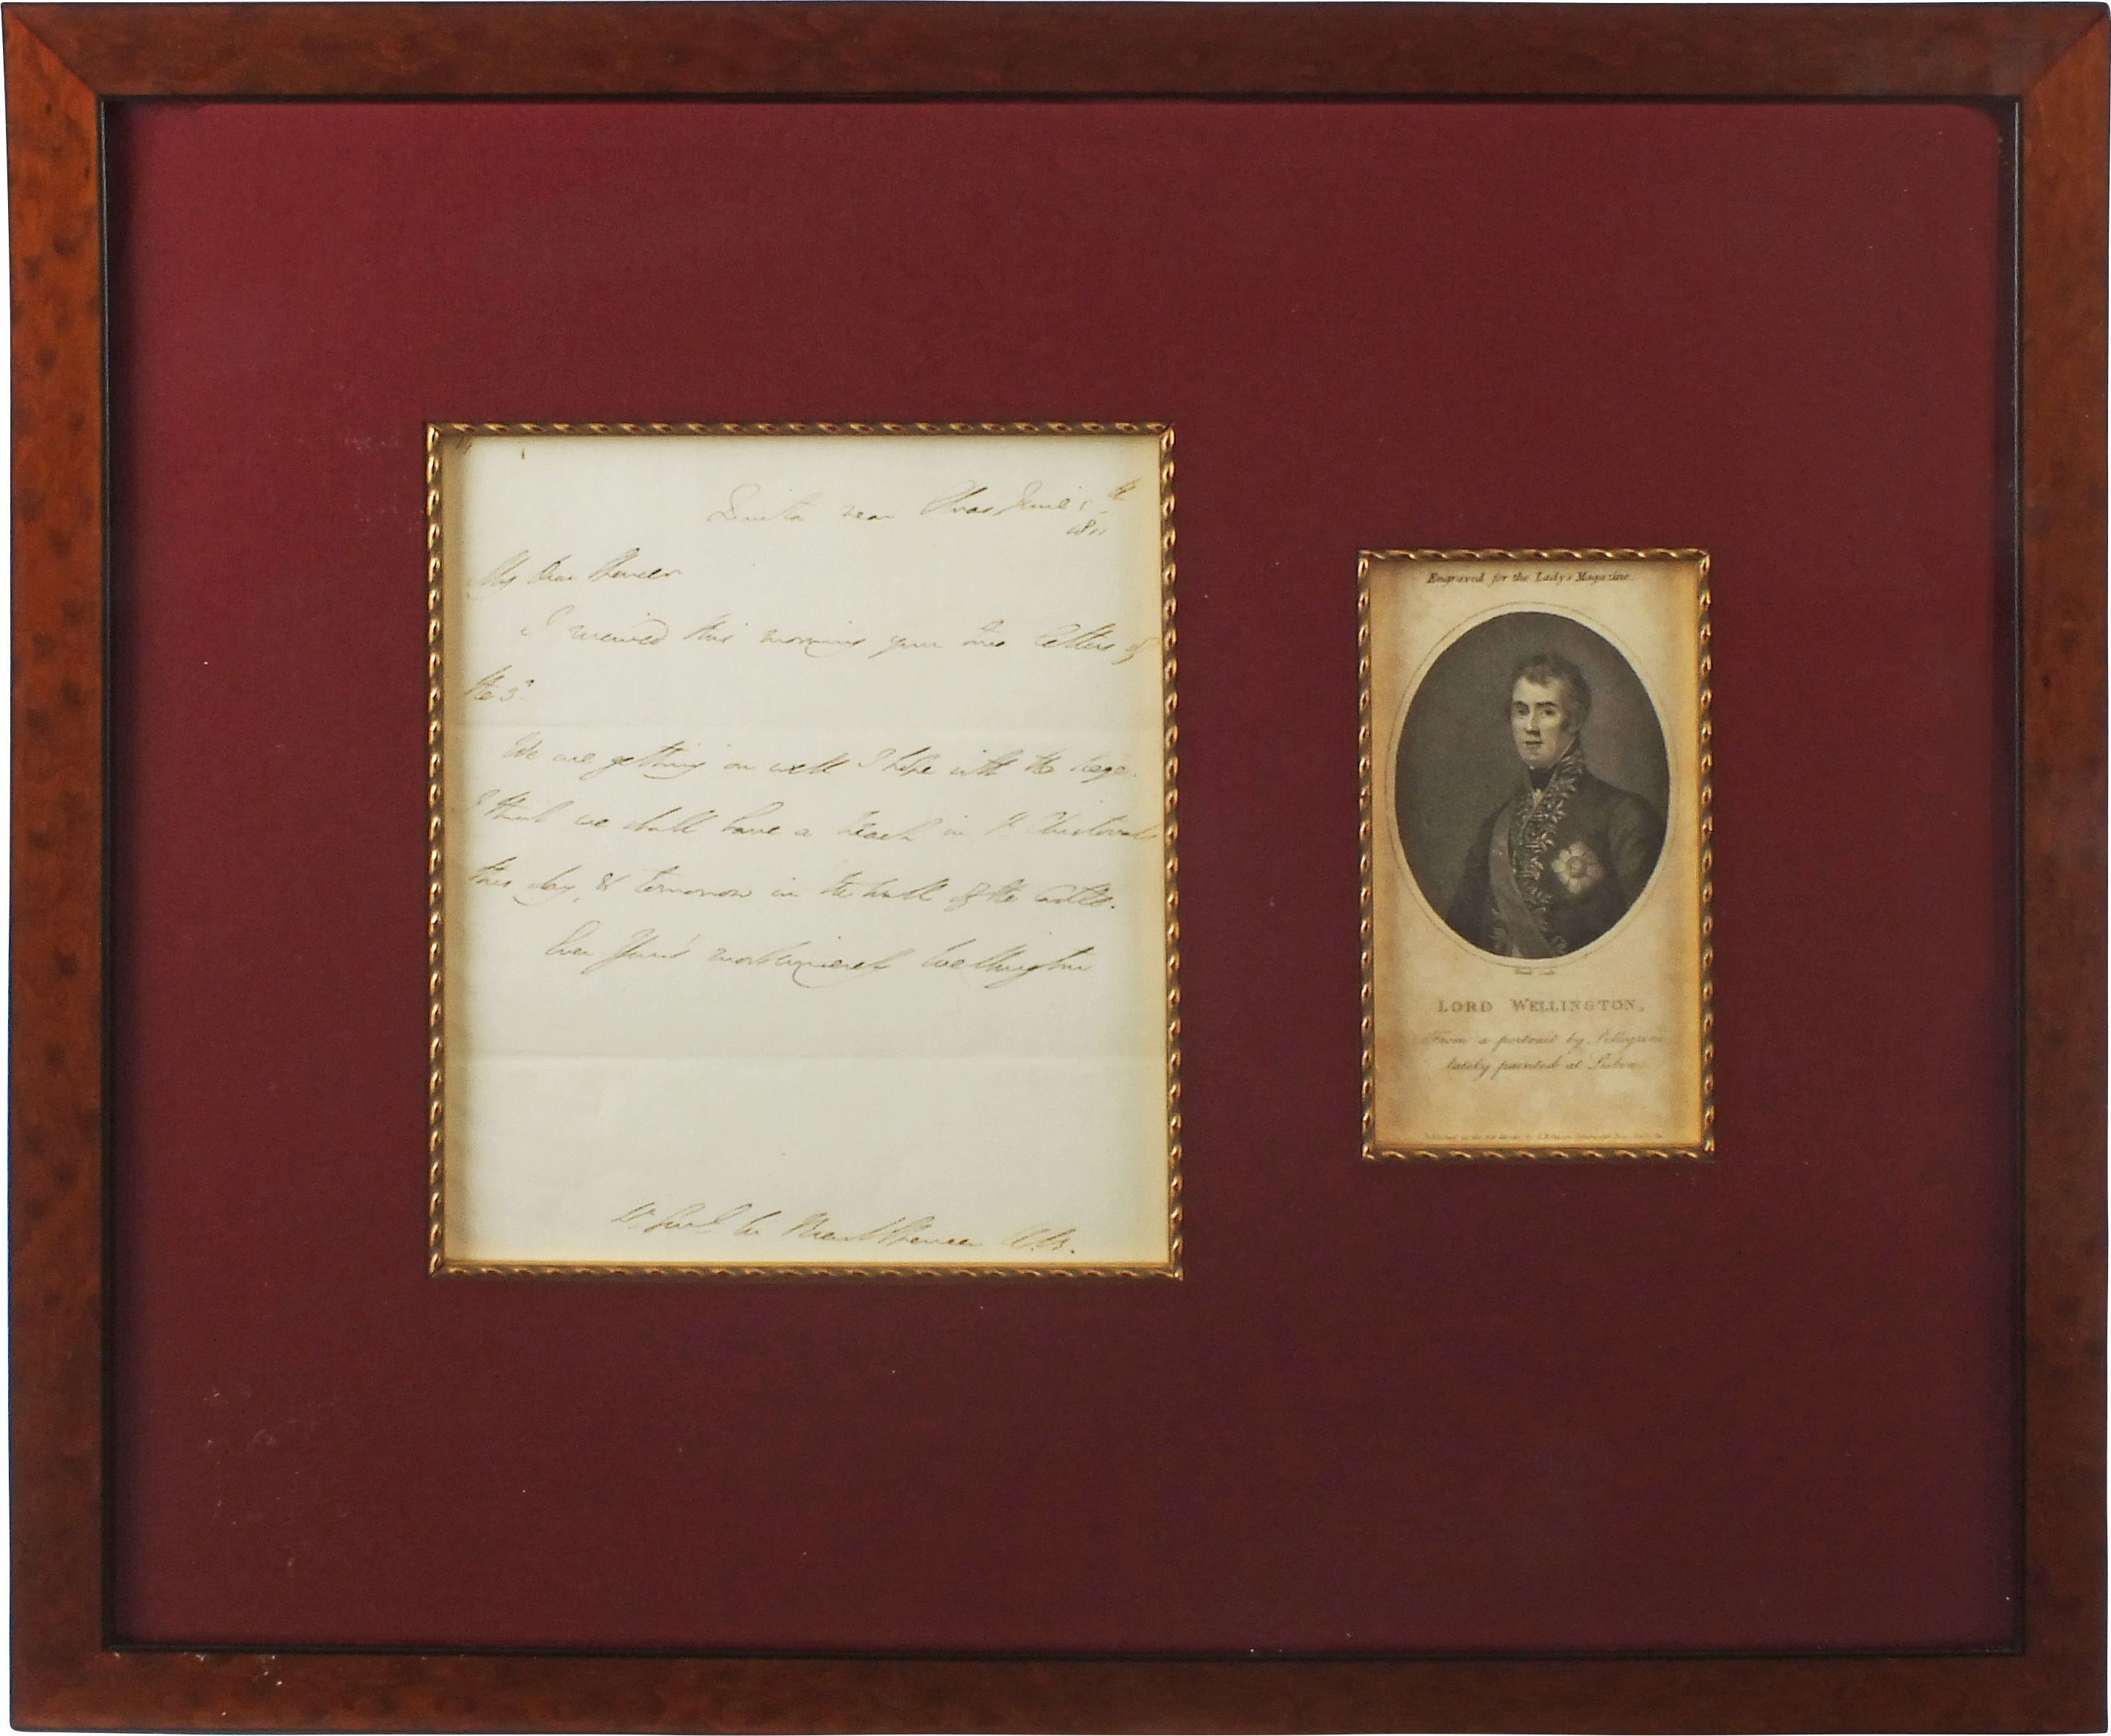 Quinta near Elvas June 5th
1811
My Dear Spencer
I received this morning your two letters of
the 3d.
We are getting on well I hope with the siege.
I think we shall have a breach in St Christovals
this day, & tomorrow in the wall of the Castle.
Ever Yours most sincerely Wellington
Lt Genl Sir Brent Spencer K.B.
Engraved for the Lady's Magazine.
LORD WELLINGTON,
From a portrait by Pellegrini
lately painted at Lisbon